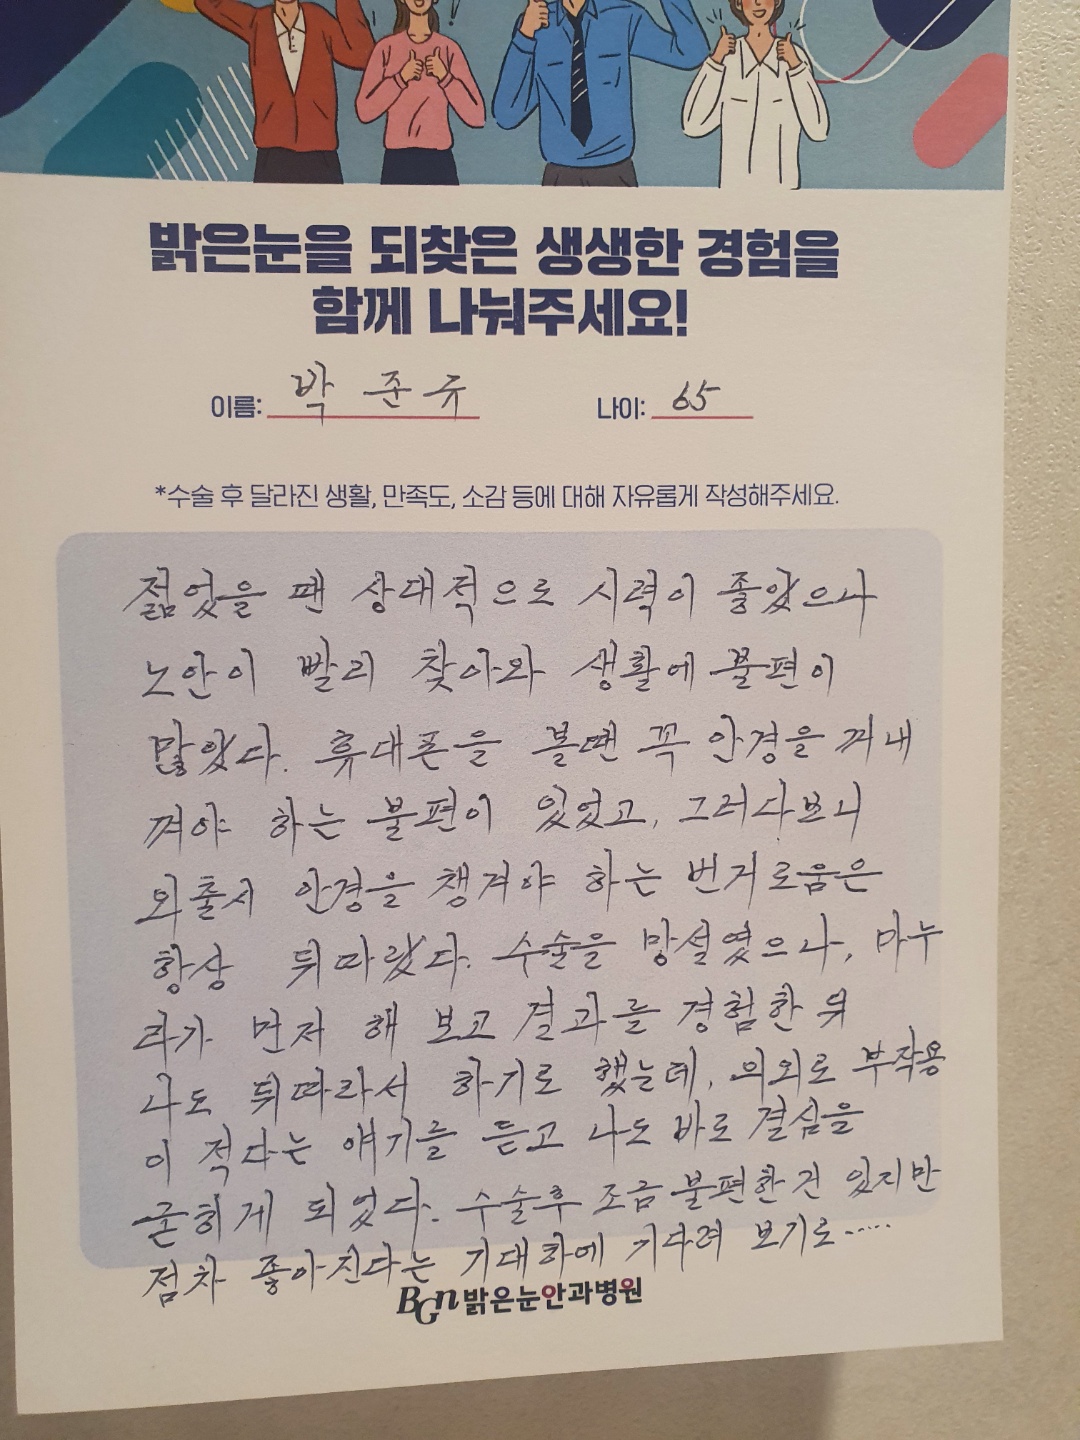 밝은눈을 되찾은 생생한 경험을
함께 나눠주세요!
이름: 박 준규 나이: 65
*수술 후 달라진 생활, 만족도, 소감 등에 대해 자유롭게 작성해주세요.
젊었을 땐 상대적으로 시력이 좋았으나
노안이 빨리 찾아와 생활에 불편이
많았다. 휴대폰을 볼땐 꼭 안경을 꺼내
껴야 하는 불편이 있었고, 그러다보니
외출시 안경을 챙겨야 하는 번거로움은
항상 뒤따랐다. 수술을 망설였으나, 마누
라가 먼저 해 보고 결과를 경험한 뒤
나도 뒤따라서 하기로 했는데, 의외로 부작용
이 적다는 얘기를 듣고 나도 바로 결심을
굳히게 되었다. 수술후 조금 불편한건 있지만
점차 좋아진다는 기대하에 기다려 보기로.....
BGn밝은눈안과병원